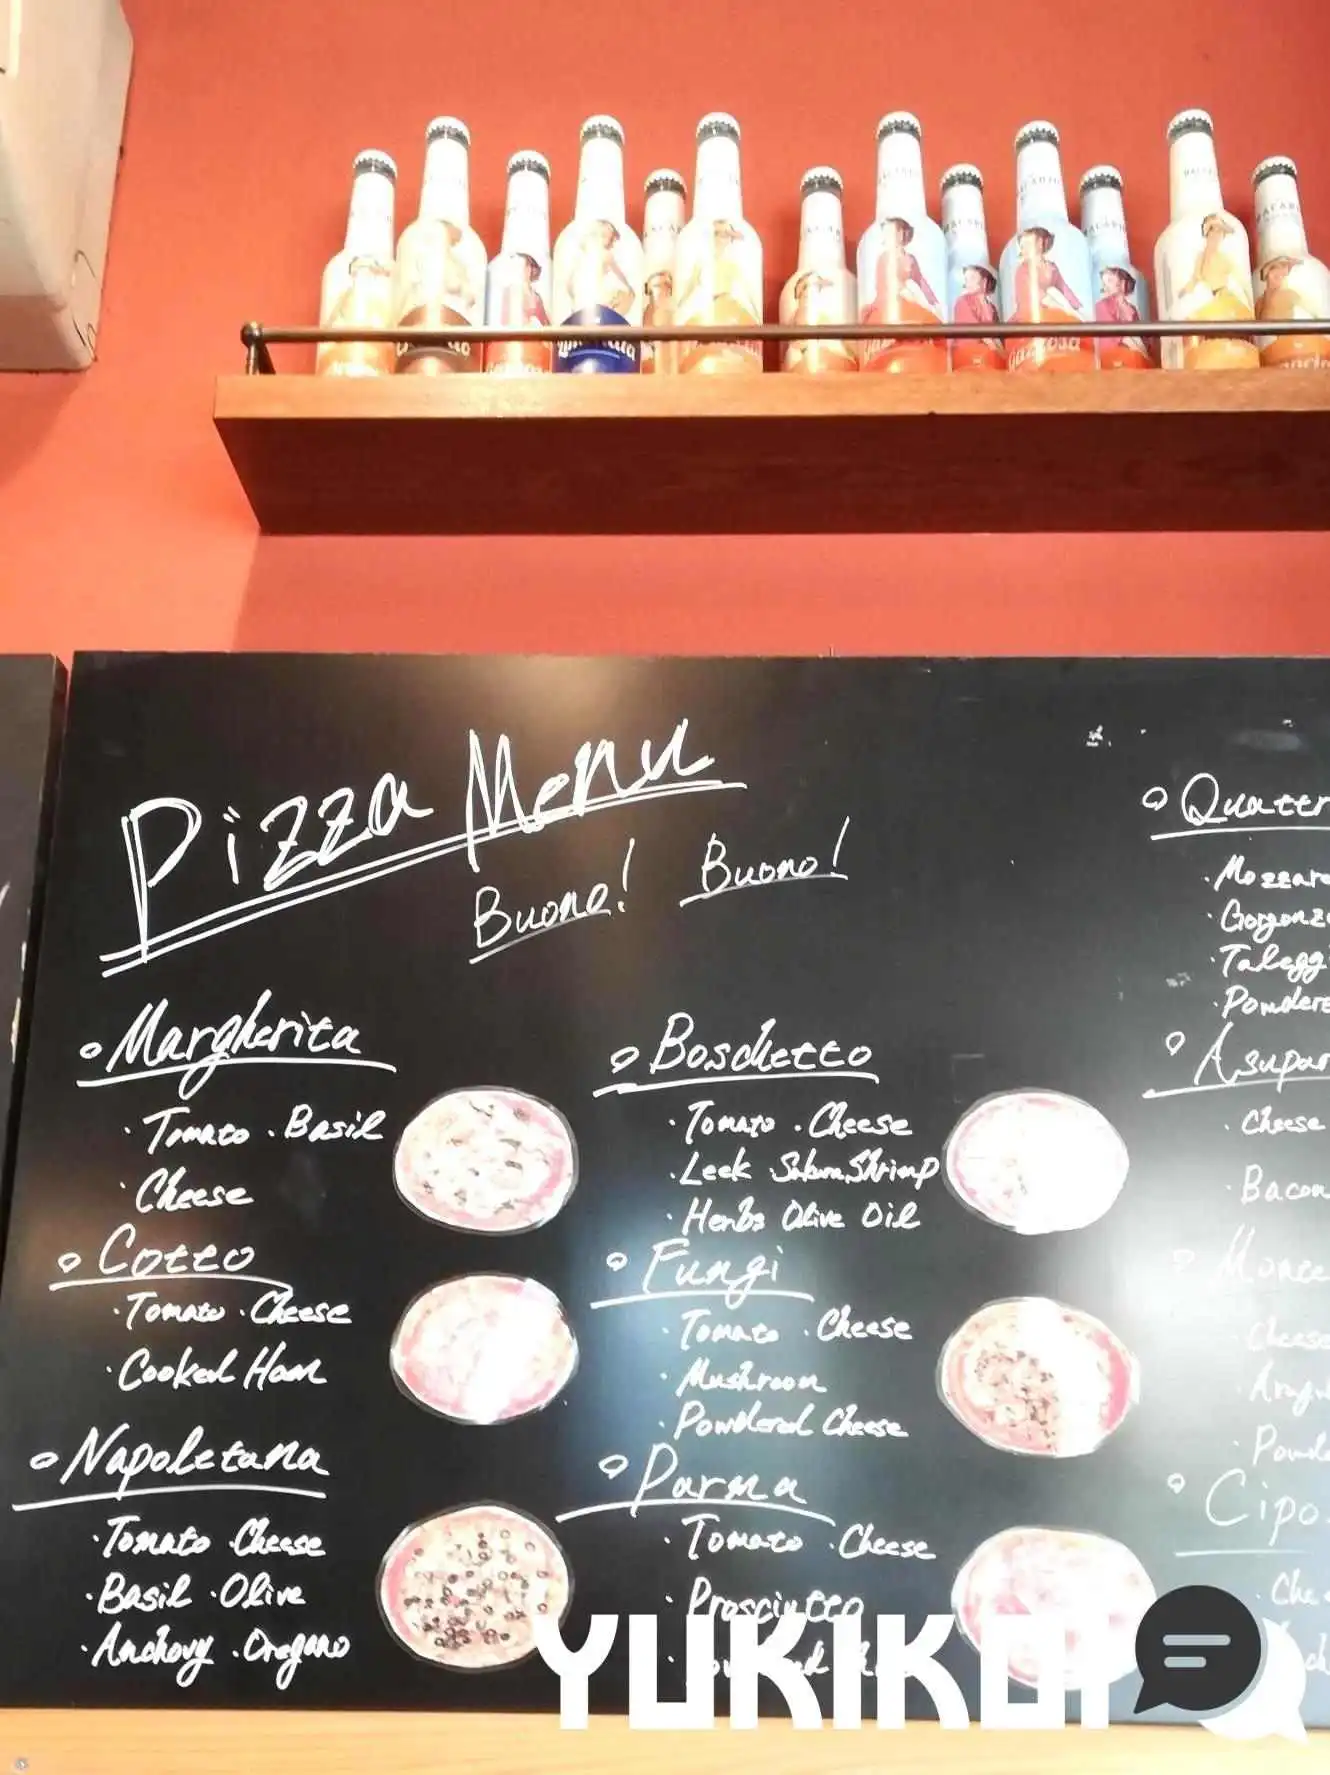 Pizza Menu
Buono! Buono!
Margherita
・Tomato ・Basil
・Cheese
Cotto
・Tomato ・Cheese
・Cooked Ham
Napoletana
・Tomato Cheese
・Basil ・Olive
・Anchovy ・Oregano
Boschetto
・Tomato ・Cheese
・Leek ・Sakura Shrimp
・Herbs Olive Oil
Fungi
・Tomato ・Cheese
・Mushroom
・Powdered Cheese
Parma
・Tomato ・Cheese
・Prosciutto
Quattr
・Mozzar
・Gorgonz
・Talegg
・Powdere
Asupar
・Cheese
・Bacon
Cheese
Cipo
YUKIKO!